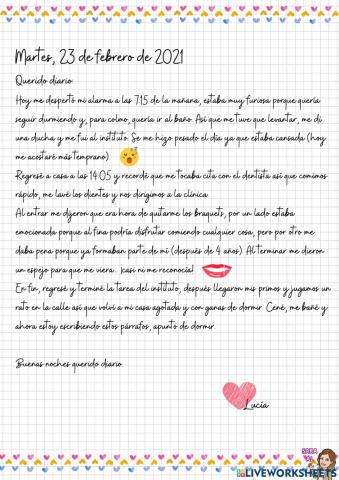 Martes, 23 de febrero de 2021
Querido diario:
Hoy me despertó mi alarma a las 7:15 de la mañana, estaba muy furiosa porque quería
seguir durmiendo y, para colmo, quería ir al baño. Así que me tuve que levantar, me di
una ducha y me fui al instituto. Se me hizo pesado el día ya que estaba cansada (hoy
me acostaré más temprano).
Regresé a casa a las 14:05 y recordé que me tocaba cita con el dentista así que comimos
rápido, me lavé los dientes y nos dirigimos a la clínica.
Al entrar me dijeron que era hora de quitarme los braquets, por un lado estaba
emocionada porque al fin podría disfrutar comiendo cualquier cosa, pero por otro me
daba pena porque ya formaban parte de mí (después de 4 años). Al terminar me dieron
un espejo para que me viera. ¡casi ni me reconocía!
En fin, regresé y terminé la tarea del instituto, después llegaron mis primos y jugamos un
rato en la calle así que volví a mi casa agotada y con ganas de dormir. Cené, me bañé y
ahora estoy escribiendo estos párrafos, apunto de dormir.
Buenas noches querido diario.
Lucía
LIVEWORKSHEETS